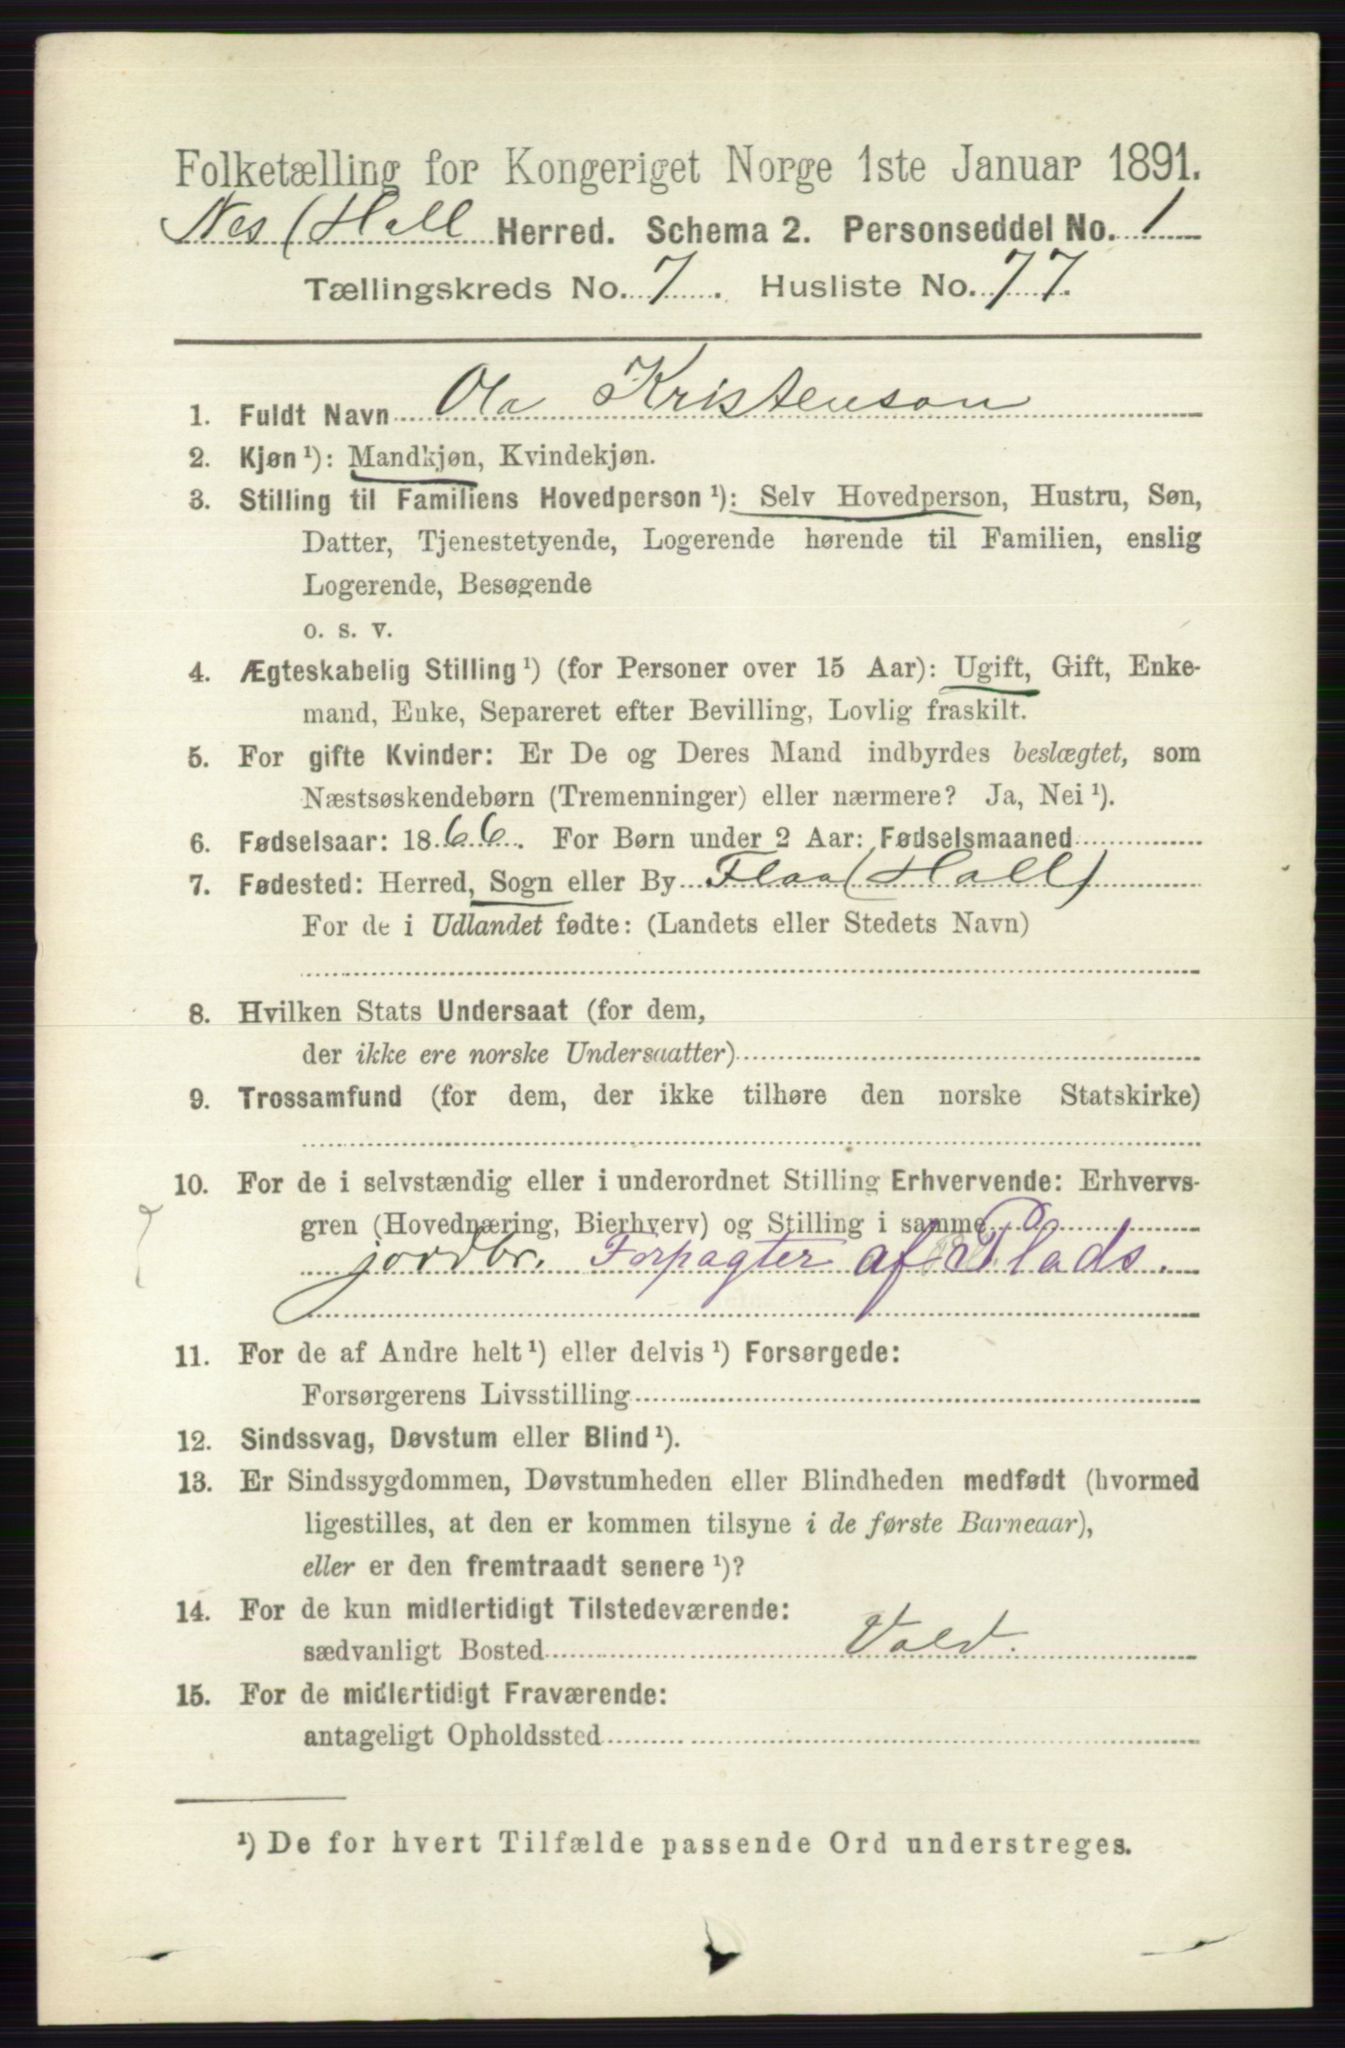 Folketælling for Kongeriget Norge 1ste Januar 1891.
Nes (Hall Herred. Schema 2. Personseddel No. 1
Tællingskreds No. 7. Husliste No. 77.
1. Fuldt Navn Ola Kristenson
2. Kjøn ¹): Mandkjøn, Kvindekjøn.
3. Stilling til Familiens Hovedperson ¹): Selv Hovedperson, Hustru, Søn,
Datter, Tjenestetyende, Logerende hørende til Familien, enslig
Logerende, Besøgende
o. s. v.
4. Ægteskabelig Stilling ¹) (for Personer over 15 Aar): Ugift, Gift, Enke-
mand, Enke, Separeret efter Bevilling, Lovlig fraskilt.
5. For gifte Kvinder: Er De og Deres Mand indbyrdes beslægtet, som
Næstsøskendebørn (Tremenninger) eller nærmere? Ja, Nei ¹).
6. Fødselsaar: 1866. For Børn under 2 Aar: Fødselsmaaned
7. Fødested: Herred, Sogn eller By Flaa (Hall)
For de i Udlandet fødte: (Landets eller Stedets Navn)
8. Hvilken Stats Undersaat (for dem,
der ikke ere norske Undersaatter)
9. Trossamfund (for dem, der ikke tilhøre den norske Statskirke)
10. For de i selvstændig eller i underordnet Stilling Erhvervende: Erhvervs-
gren (Hovednæring, Bierhverv) og Stilling i samme
jordbr. Forpagter af Plads.
11. For de af Andre helt ¹) eller delvis ¹) Forsørgede:
Forsørgerens Livsstilling
12. Sindssvag, Døvstum eller Blind ¹).
13. Er Sindssygdommen, Døvstumheden eller Blindheden medfødt (hvormed
ligestilles, at den er kommen tilsyne i de første Barneaar),
eller er den fremtraadt senere ¹)?
14. For de kun midlertidigt Tilstedeværende:
sædvanligt Bosted Vold.
15. For de midlertidigt Fraværende:
antageligt Opholdssted
¹) De for hvert Tilfælde passende Ord understreges.